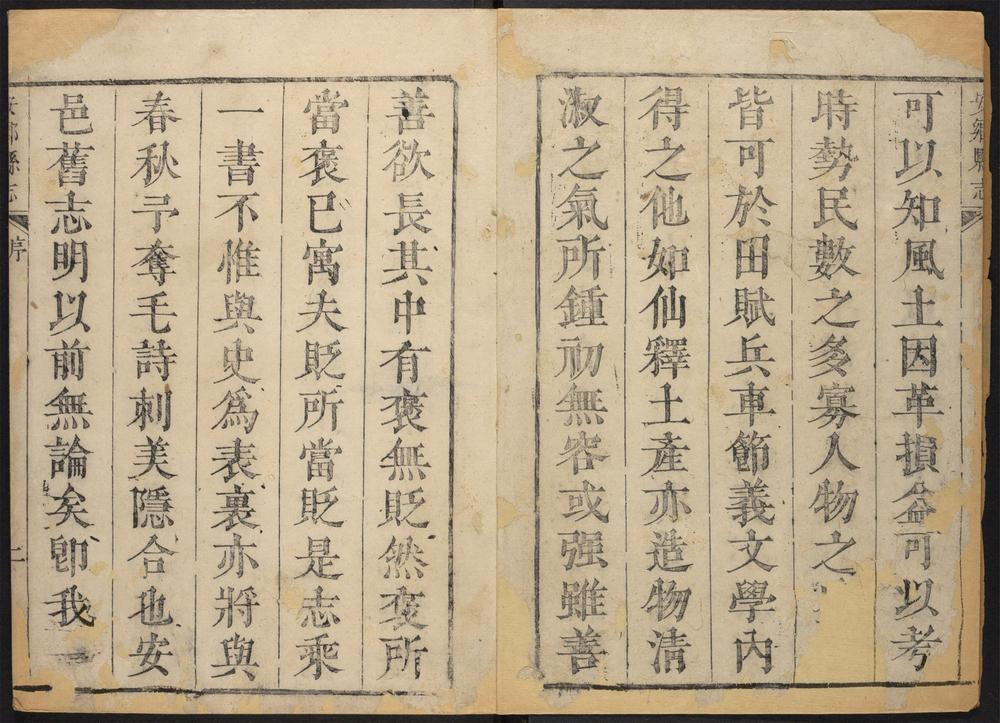 安鄉縣志
可以知風土因革損益可以考
時勢民數之多寡人物之
皆可於田賦兵車節義文學內
得之他如仙釋土產亦造物清
淑之氣所鍾初無容或强雖善
善欲長其中有褒無貶然褒所
當褒已寓夫貶所當貶是志乘
一書不惟與史爲表裏亦將與
春秋予奪毛詩刺美隱合也安
邑舊志明以前無論矣卽我
縣志
序
二